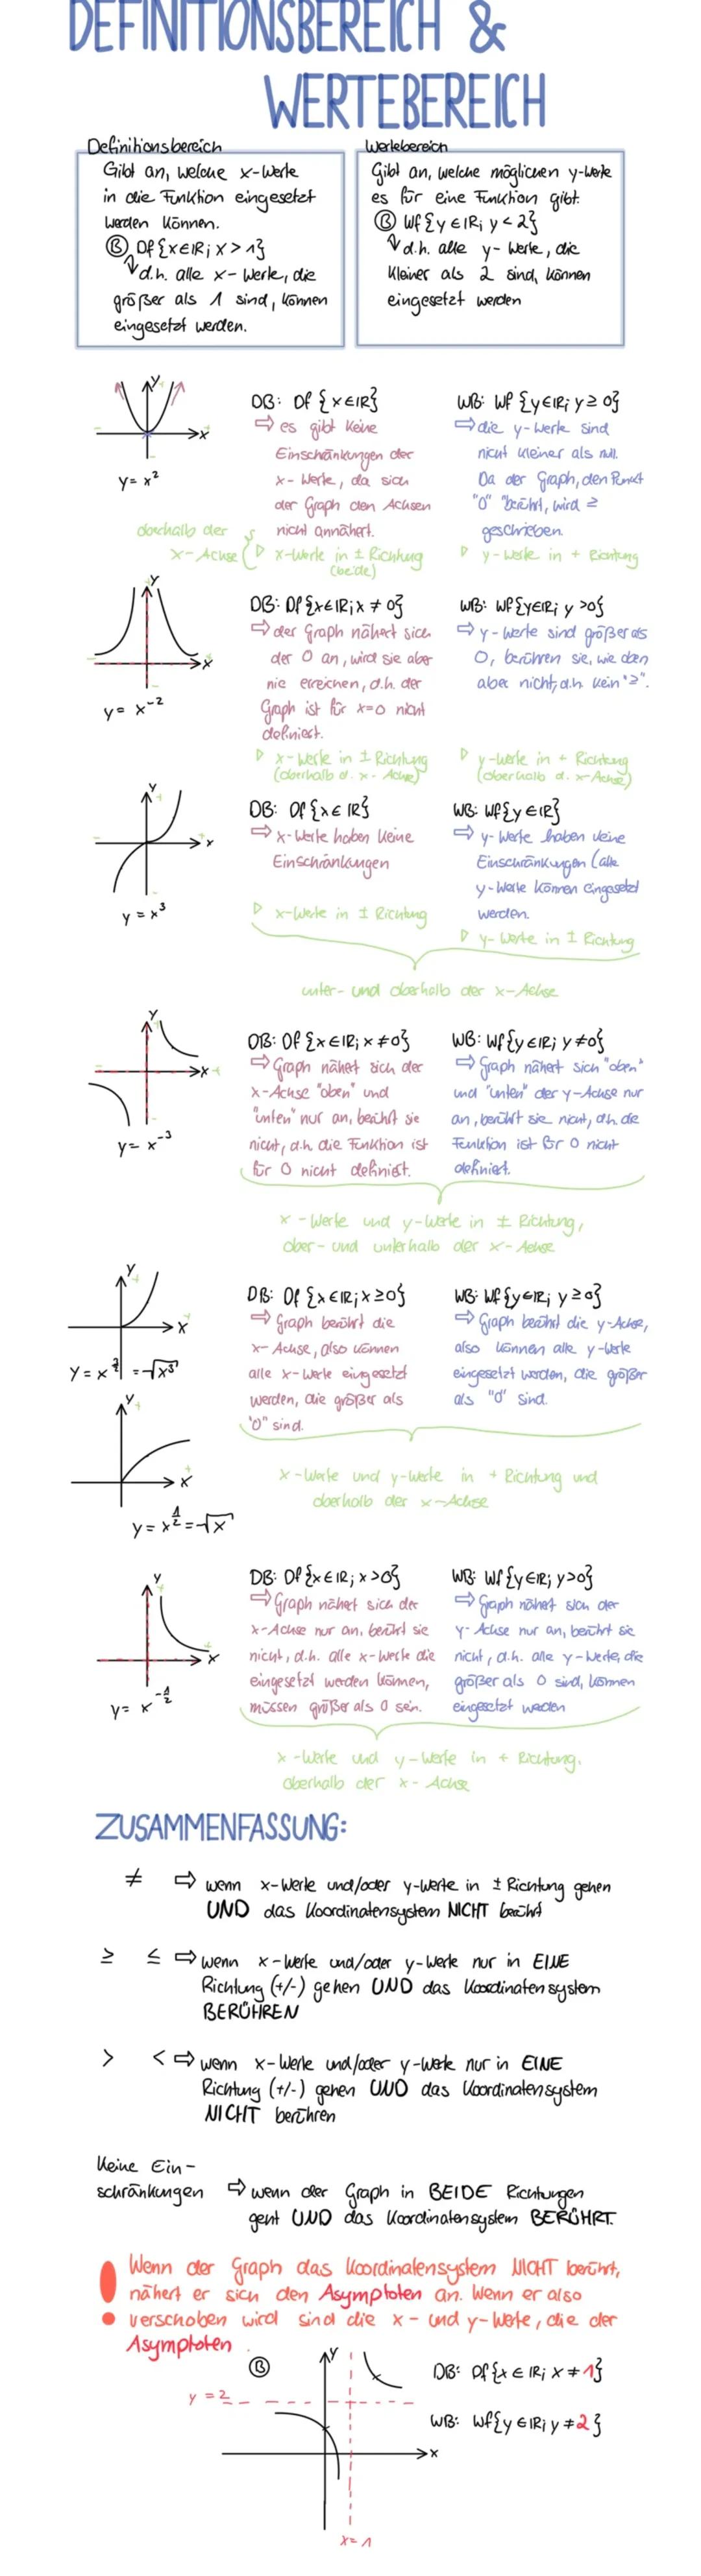 DEFINITIONSBEREICH &
WERTEBEREICH
Definitionsbereich
Gibt an, welche x-Werte
in die Funktion eingesetzt
werden können.
Ⓑ Df{x∈ℝ; x > 1}
↳ d.h. alle x-Werte, die
größer als 1 sind, können
eingesetzt werden.
Wertebereich
Gibt an, welche möglichen y-Werte
es für eine Funktion gibt.
Ⓑ Wf{y∈ℝ; y < 2}
↳ d.h. alle y-Werte, die
kleiner als 2 sind, können
eingesetzt werden
y
x
y = x²
DB: Df {x∈ℝ}
⇨ es gibt keine
Einschränkungen der
x-Werte, da sich
der Graph den Achsen
nicht annähert.
oberhalb der
x-Achse
▷ x-Werte in ± Richtung
(beide)
WB: Wf {y∈ℝ; y ≥ 0}
⇨ die y-Werte sind
nicht kleiner als null.
Da der Graph, den Punkt
"0" berührt, wird ≥
geschrieben.
▷ y-Werte in + Richtung
y
x
y = x⁻²
DB: Df{x∈ℝ; x ≠ 0}
⇨ der Graph nähert sich
der 0 an, wird sie aber
nie erreichen, d.h. der
Graph ist für x=0 nicht
definiert.
▷ x-Werte in ± Richtung
(oberhalb d. x-Achse)
WB: Wf{y∈ℝ; y >0}
⇨ y-Werte sind größer als
0, berühren sie, wie oben
aber nicht, d.h. kein "≥".
▷ y-Werte in + Richtung
(oberhalb d. x-Achse)
y
x
y = x³
DB: Df{x∈ ℝ}
⇨ x-Werte haben keine
Einschränkungen
▷ x-Werte in ± Richtung
WB: Wf{y∈ℝ}
⇨ y-Werte haben keine
Einschränkungen (alle
y-Werte können eingesetzt
werden.
▷ y-Werte in ± Richtung
unter- und oberhalb der x-Achse
y
x
y = x⁻³
DB: Df{x∈ℝ; x ≠ 0}
⇨ Graph nähert sich der
x-Achse "oben" und
"unten" nur an, berührt sie
nicht, d.h. die Funktion ist
für 0 nicht definiert.
WB: Wf{y∈ℝ; y≠0}
⇨ Graph nähert sich "oben"
und "unten" der y-Achse nur
an, berührt sie nicht, d.h. die
Funktion ist für 0 nicht
definiert.
x-Werte und y-Werte in ± Richtung,
ober- und unterhalb der x-Achse
y
x
y = x^3/2 = √x³
y
x
y = x^1/2 = √x
DB: Df{x∈ℝ; x≥0}
⇨ Graph berührt die
x-Achse, also können
alle x-Werte eingesetzt
werden, die größer als
"0" sind.
WB: Wf{y∈ℝ; y≥0}
⇨ Graph berührt die y-Achse,
also können alle y-Werte
eingesetzt werden, die größer
als "0" sind.
x-Werte und y-Werte in + Richtung und
oberhalb der x-Achse
y
x
y = x^-1/2
DB: Df{x∈ℝ; x>0}
⇨ Graph nähert sich der
x-Achse nur an, berührt sie
nicht, d.h. alle x-Werte die
eingesetzt werden können,
müssen größer als 0 sein.
WB: Wf{y∈ℝ; y>0}
⇨ Graph nähert sich der
y-Achse nur an, berührt sie
nicht, d.h. alle y-Werte, die
größer als 0 sind, können
eingesetzt werden
x-Werte und y-Werte in + Richtung,
oberhalb der x-Achse
ZUSAMMENFASSUNG:
≠ ⇨ wenn x-Werte und/oder y-Werte in ± Richtung gehen
UND das Koordinatensystem NICHT berührt
≥ ≤ ⇨ wenn x-Werte und/oder y-Werte nur in EINE
Richtung (+/-) gehen UND das Koordinatensystem
BERÜHREN
> < ⇨ wenn x-Werte und/oder y-Werte nur in EINE
Richtung (+/-) gehen UND das Koordinatensystem
NICHT berühren
Keine Ein-
schränkungen ⇨ wenn der Graph in BEIDE Richtungen
geht UND das Koordinatensystem BERÜHRT.
! Wenn der Graph das Koordinatensystem NICHT berührt,
nähert er sich den Asymptoten an. Wenn er also
verschoben wird sind die x- und y-Werte, die der
Asymptoten.
Ⓑ
y
x
y = 2
x = 1
DB: Df{x∈ℝ; x ≠ 1}
WB: Wf{y∈ℝ; y ≠ 2}